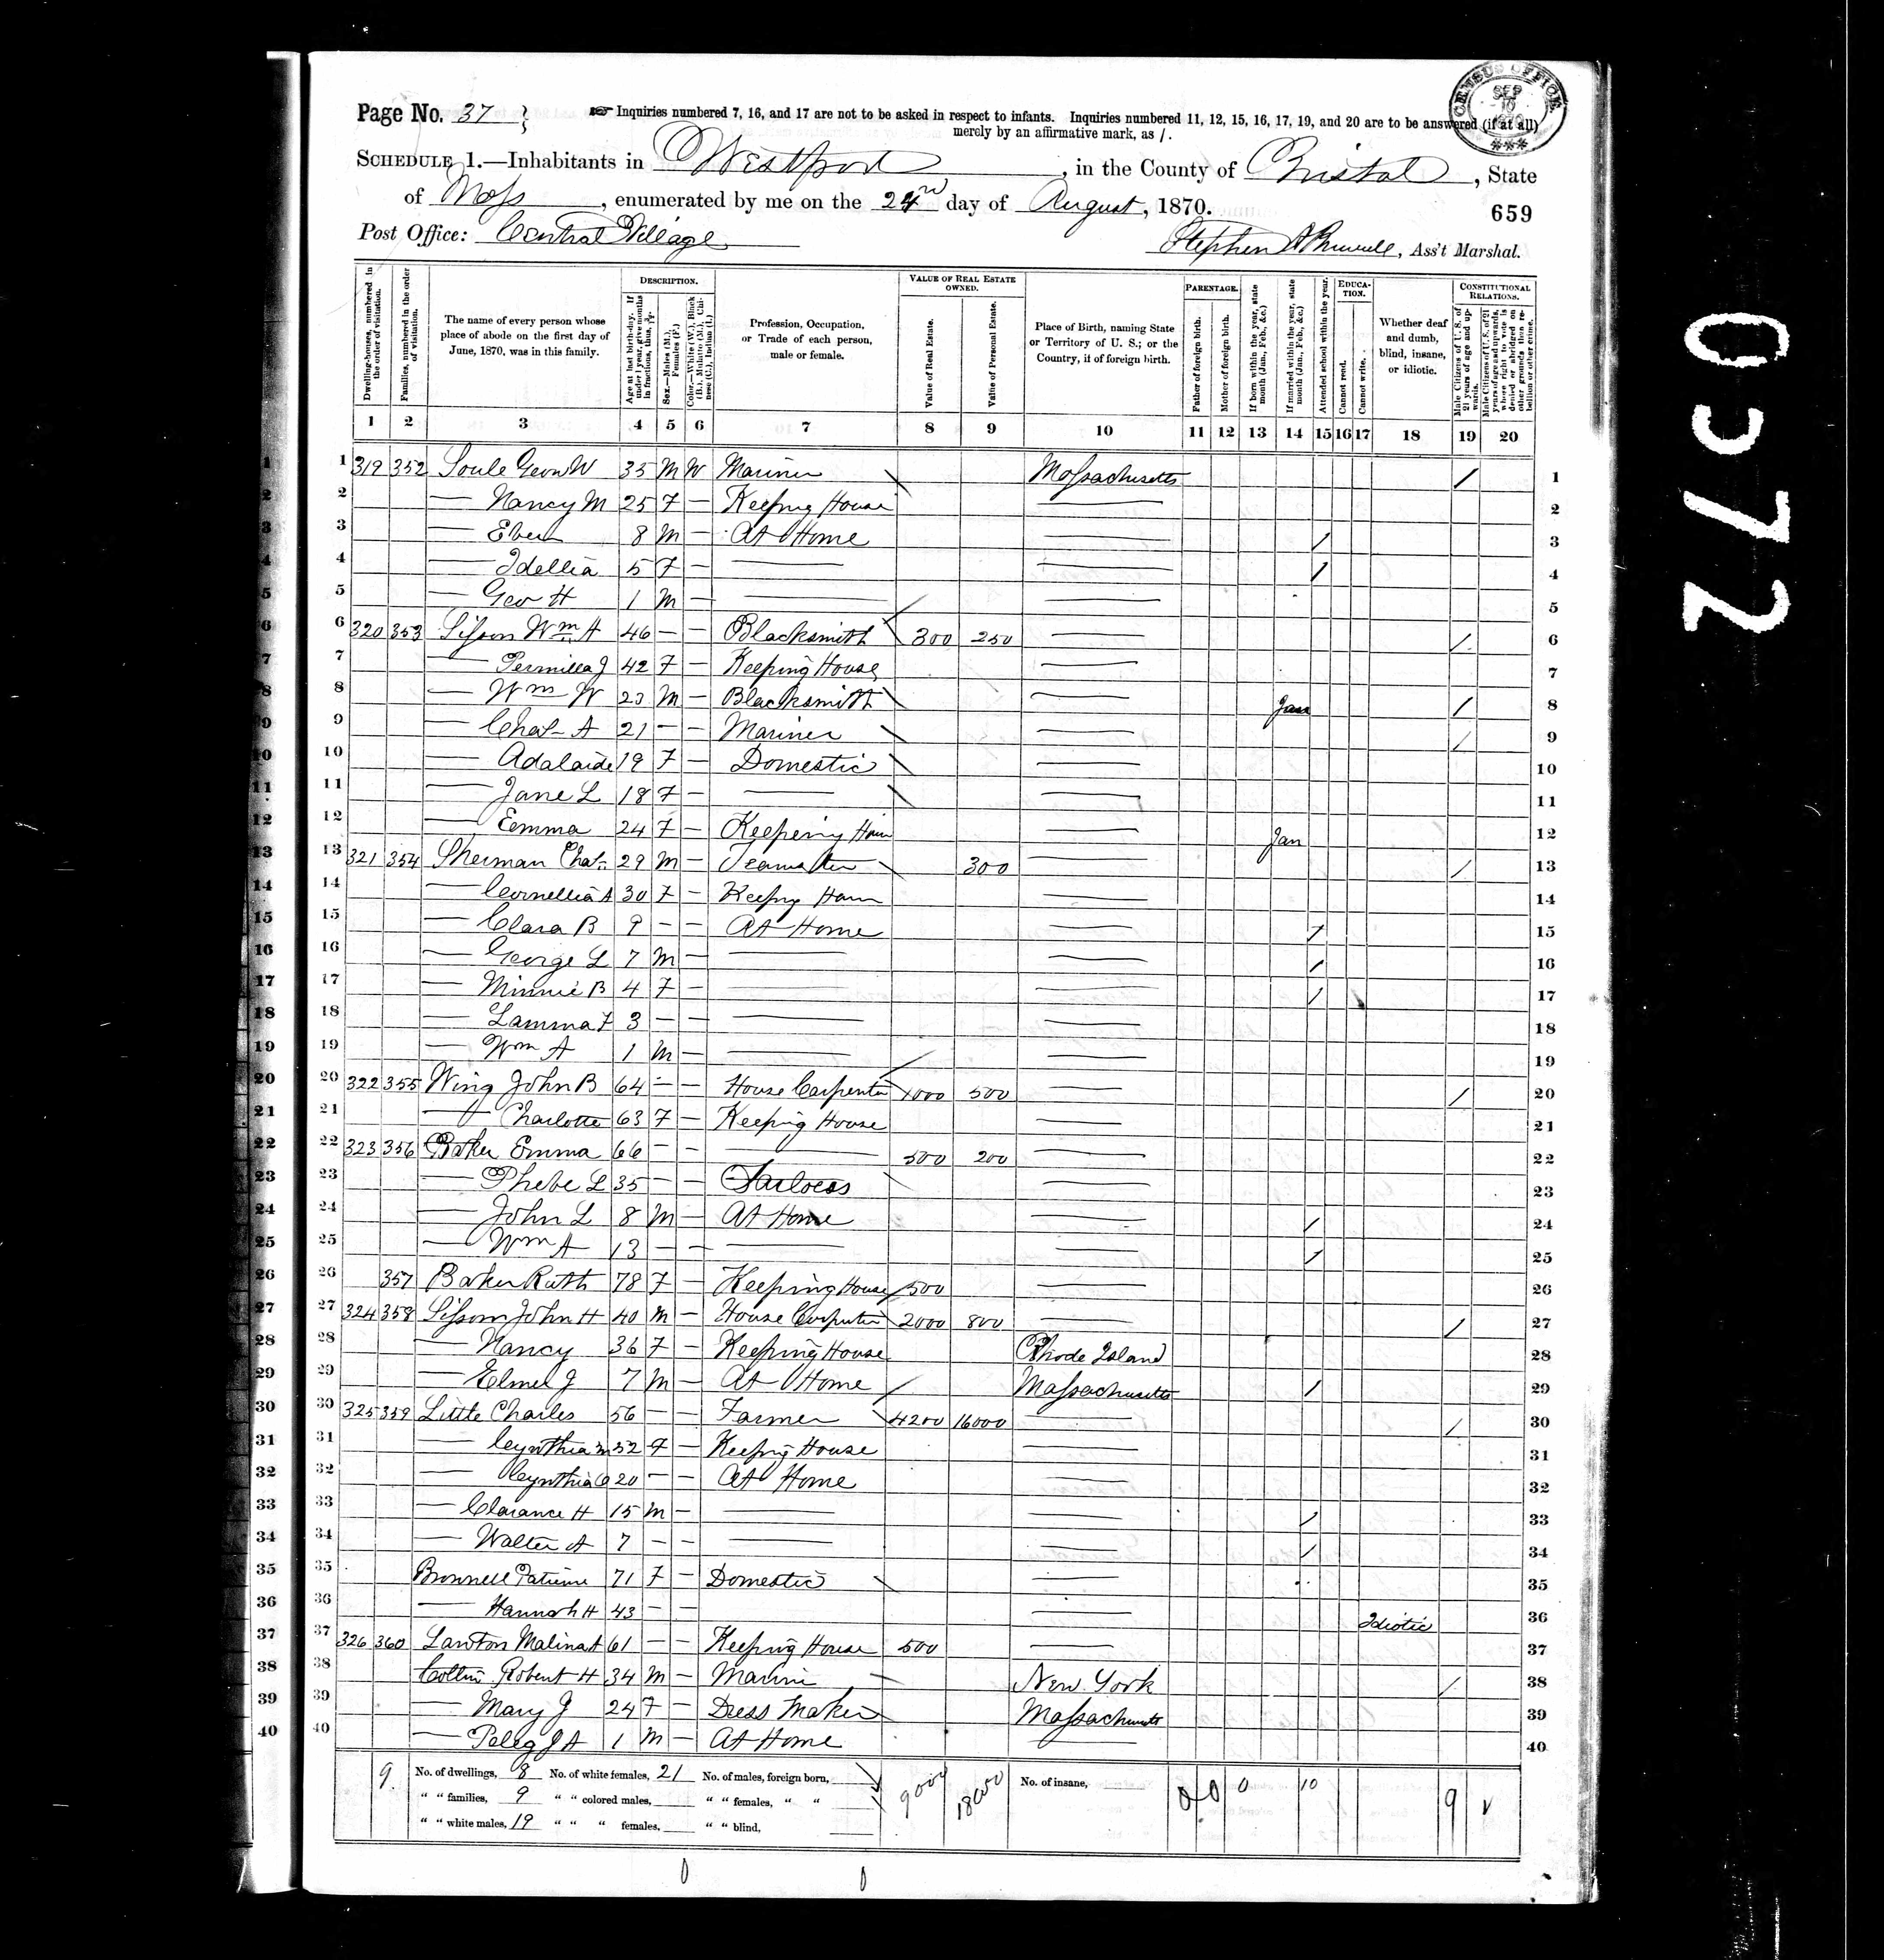 Page No. 37
☞ Inquiries numbered 7, 16, and 17 are not to be asked in respect to infants. Inquiries numbered 11, 12, 15, 16, 17, 19, and 20 are to be answered (if at all)
merely by an affirmative mark, as /.
CENSUS OFFICE SEP 10 1870
SCHEDULE 1.—Inhabitants in Westport, in the County of Bristol, State
of Mass, enumerated by me on the 24 day of August, 1870.
659
Post Office: Central Village
Stephen A Brownell, Ass't Marshal.
Dwelling-houses, numbered in the order of visitation.
Families, numbered in the order of visitation.
The name of every person whose place of abode on the first day of June, 1870, was in this family.
DESCRIPTION.
Age at last birth-day. If under 1 year, give months in fractions, thus, 3/12.
Sex.—Males (M.), Females (F.)
Color.—White (W.), Black (B.), Mulatto (M.), Chinese (C.), Indian (I.)
Profession, Occupation, or Trade of each person, male or female.
VALUE OF REAL ESTATE OWNED.
Value of Real Estate.
Value of Personal Estate.
Place of Birth, naming State or Territory of U. S.; or the Country, if of foreign birth.
PARENTAGE.
Father of foreign birth.
Mother of foreign birth.
If born within the year, state month (Jan., Feb., &c.)
If married within the year, state month (Jan., Feb., &c.)
Attended school within the year.
EDUCATION.
Cannot read.
Cannot write.
Whether deaf and dumb, blind, insane, or idiotic.
CONSTITUTIONAL RELATIONS.
Male Citizens of U. S. of 21 years of age and upwards.
Male Citizens of U. S. of 21 years of age and upwards, whose right to vote is denied or abridged on other grounds than rebellion or other crime.
1 2 3 4 5 6 7 8 9 10 11 12 13 14 15 16 17 18 19 20
1 319 352 Soule Geo W 35 M W Mariner Massachusetts / 1
2 — Nancy M 25 F — Keeping House — 2
3 — Eben 8 M — At Home — / 3
4 — Idellia 5 F — — — / 4
5 — Geo H 1 M — — — 5
6 320 353 Sisson Wm H 46 — — Blacksmith 300 250 — / 6
7 — Permilla J 42 F — Keeping House — 7
8 — Wm W 23 M — Blacksmith — Jan / 8
9 — Chas A 21 — — Mariner — / 9
10 — Adalaide 19 F — Domestic — 10
11 — Jane L 18 F — — — 11
12 — Emma 24 F — Keeping Hous — Jan 12
13 321 354 Sherman Chas 29 M — Teamster 300 — / 13
14 — Cornellia A 30 F — Keeping Hous — 14
15 — Clara B 9 — — At Home — / 15
16 — George L 7 M — — — / 16
17 — Minnie B 4 F — — — / 17
18 — F 3 — — — — 18
19 — Wm A 1 M — — — 19
20 322 355 Wing John B 64 — — House Carpenter 1000 500 — / 20
21 — Charlotte 63 F — Keeping House — 21
22 323 356 Baker Emma 66 — — — 500 200 — 22
23 — Phebe L 35 — — Tailoess — 23
24 — John L 8 M — At Home — / 24
25 — Wm A 13 — — — — / 25
26 357 Baker Ruth 78 F — Keeping House 500 — 26
27 324 358 Sisson John H 40 M — House Carpenter 2000 800 — / 27
28 — Nancy 36 F — Keeping House Rhode Island 28
29 — Elmer J 7 M — At Home Massachusetts / 29
30 325 359 Little Charles 56 — — Farmer 4200 16000 — / 30
31 — Cynthia M 52 F — Keeping House — 31
32 — Cynthia 20 — — At Home — 32
33 — Clarance H 15 M — — — / 33
34 — Walter A 7 — — — — / 34
35 Brownell Patience 71 F — Domestic — 35
36 — Hannah H 43 — — — Idiotic 36
37 326 360 Lawton Malina A 61 — — Keeping House 500 — 37
38 Collins Robert H 34 M — Marine New York / 38
39 — Mary J 24 F — Dress Maker Massachusetts 39
40 — Peleg J A 1 M — At Home — 40
9 No. of dwellings, 8 No. of white females, 21 No. of males, foreign born, 9000 18000 No. of insane, 0 0 0 10 9
" " families, 9 " " colored males, " " females, " "
" " white males, 19 " " " females, " " blind,
0572